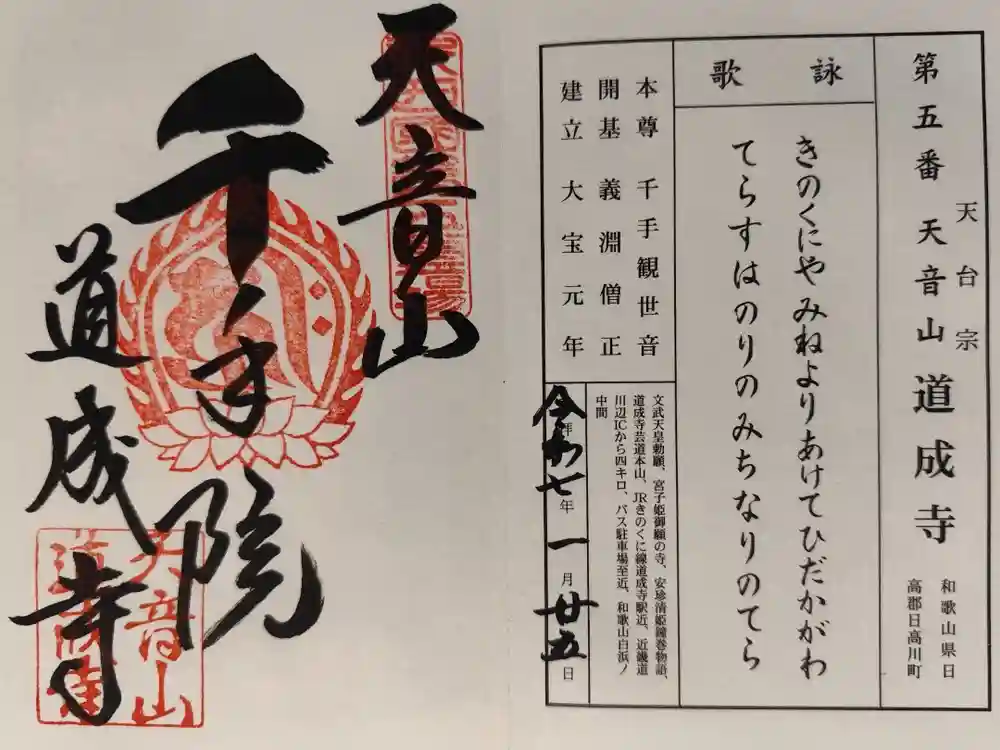 第五番 天音山 道成寺
天台宗
和歌山県日
高郡日高川町
詠歌
きのくにやみねよりあけてひだかがわ
てらすはのりのみちなりのてら
本尊 千手観世音
開基 義淵僧正
建立 大宝元年
文武天皇勅願、宮子姫御願の寺、安珍清姫鐘巻物語、
道成寺芸道本山、JRきのくに線道成寺駅近、近畿道
川辺ICから四キロ、バス駐車場至近、和歌山白浜ノ
中間
令和七年一月廿五日
天音山
千手院
道成寺
天音山